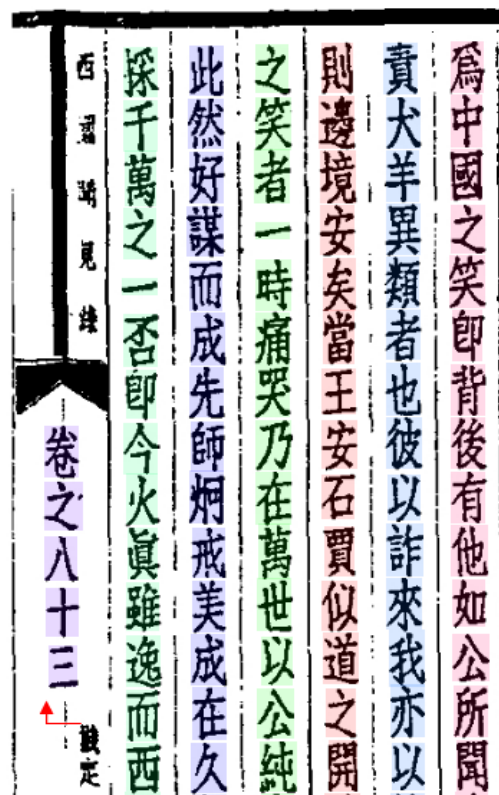 爲中國之笑卽背後有他如公所聞
責犬羊異類者也彼以詐來我亦以
則邊境安矣當王安石賈似道之開
之笑者一時痛哭乃在萬世以公純
此然好謀而成先師炯戒美成在久
採千萬之一否卽今火眞雖逸而西
西園聞見錄
卷之八十三
戡定